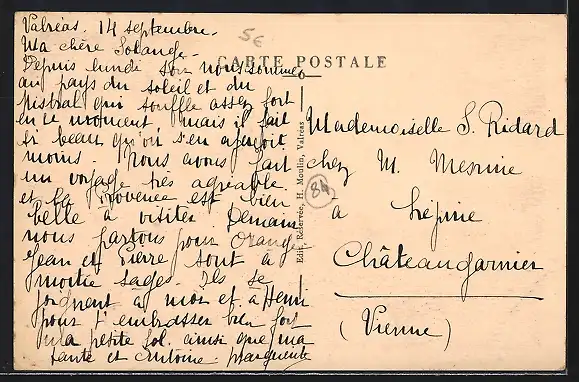 Valréas, 14 septembre.
Ma chère Solange.
Depuis lundi soir nous sommes
au pays du soleil et du
mistral qui souffle assez fort
en ce moment mais il fait
si beau qu'on s'en aperçoit
moins. Nous avons fait
un voyage très agréable
et la Provence est bien
belle à visiter Demain
nous partons pour Orange
Jean et Pierre sont à
moitié sages. Ils se
joignent à moi et à Henri
pour t'embrasser bien fort
ma petite Sol. ainsi que ma
tante et Antoine. Marguerite
5€
CARTE POSTALE
Edit. Réservée, H. Moulin, Valréas
84
Mademoiselle S. Ridard
chez M. Mesnine
à Lépine
Châteaugarnier
(Vienne)